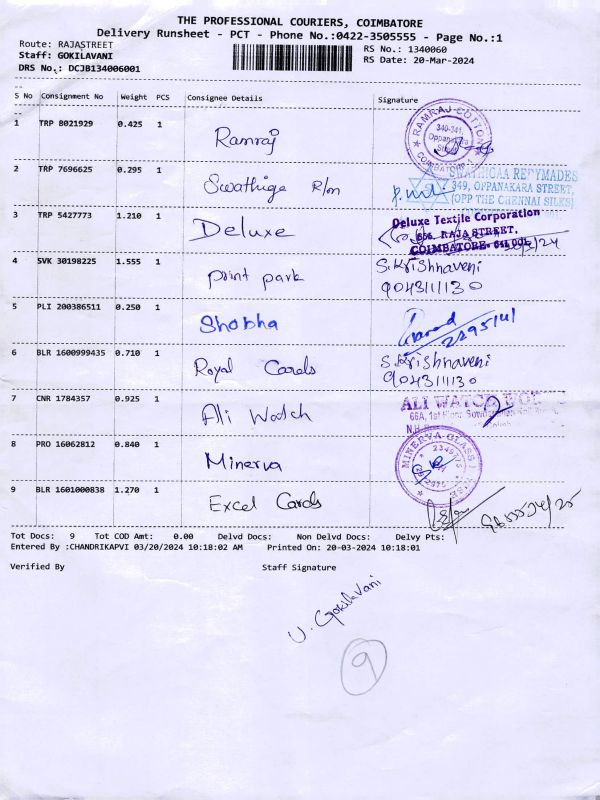 THE PROFESSIONAL COURIERS, COIMBATORE
Delivery Runsheet - PCT - Phone No.:0422-3505555 - Page No.:1
Route: RAJASTREET
RS No.: 1340060
Staff: GOKILAVANI
RS Date: 20-Mar-2024
DRS No.: DCJB134006001
S No Consignment No Weight PCS Consignee Details Signature
1 TRP 8021929 0.425 1 Ramraj
RAMRAJ COTTON
340-341
COIMBATORE-1
2 TRP 7696625 0.295 1 Swathiga R/m
SWATHIGAA REDYMADES
349, OPPANAKARA STREET,
(OPP THE CHENNAI SILKS)
3 TRP 5427773 1.210 1 Deluxe
Deluxe Textile Corporation
656, RAJA STREET,
COIMBATORE- 641 001.
4 SVK 30198225 1.555 1 print park
S.Krishnaveni
9043111130
5 PLI 200386511 0.250 1 Shobha
2295141
6 BLR 1600999435 0.710 1 Royal Cards
S.Krishnaveni
9043111130
7 CNR 1784357 0.925 1 Ali Watch
ALI WATCH
66A, 1st Floor
8 PRO 16062812 0.840 1 Minerva
MINERVA GLASS
9 BLR 1601000838 1.270 1 Excel Cards
Tot Docs: 9 Tot COD Amt: 0.00 Delvd Docs: Non Delvd Docs: Delvy Pts:
Entered By :CHANDRIKAPVI 03/20/2024 10:18:02 AM Printed On: 20-03-2024 10:18:01
Verified By Staff Signature
V. Gokilavani
9